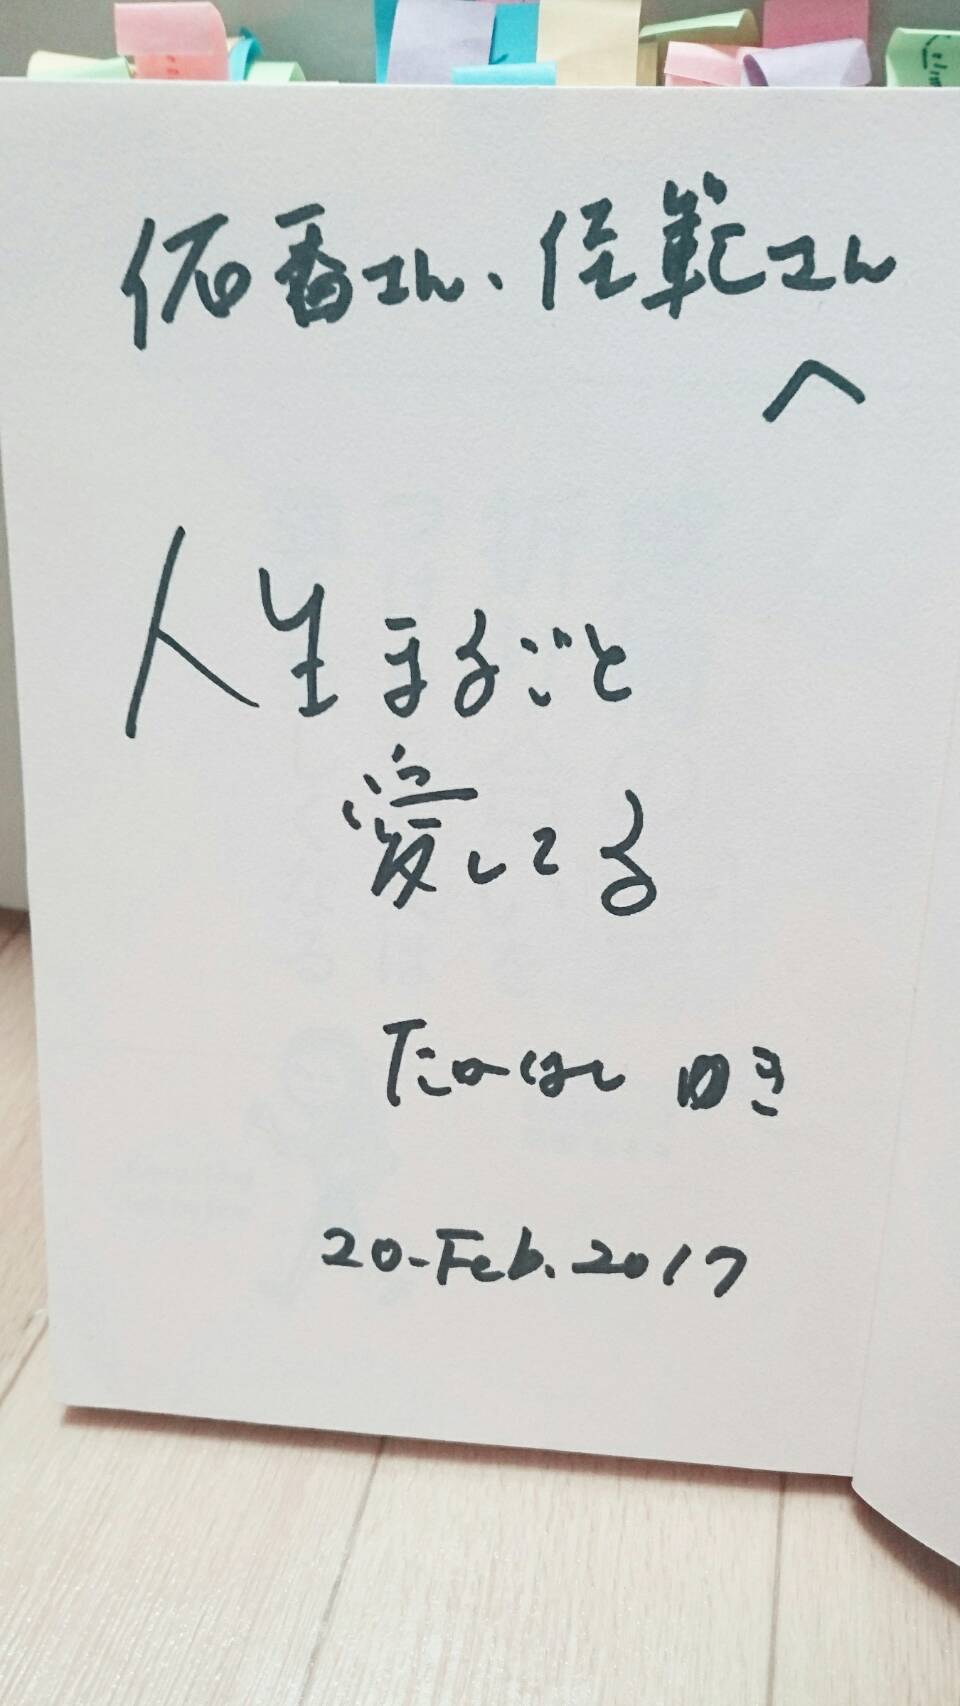 佑香さん、佳範さん
へ
人生まるごと
愛してる
たかはし ゆき
20-Feb.2017